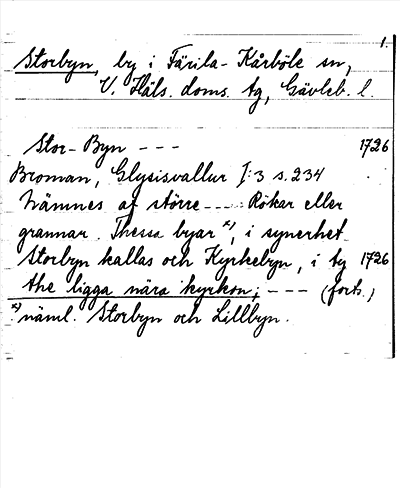 1.
Storbyn, by i Färila-Kårböle sn,
V. Häls. doms. tg, Gävleb. l.
Stor-Byn --- 1726
Broman, Glysisvallur I:3 s. 234
Nämnes af större ---- Rökar eller
grannar. Thessa byar x), i synerhet
Storbyn kallas och Kyrkebyn, i ty 1726
the ligga nära kyrkon; --- (forts.)
x) näml. Storbyn och Lillbyn.